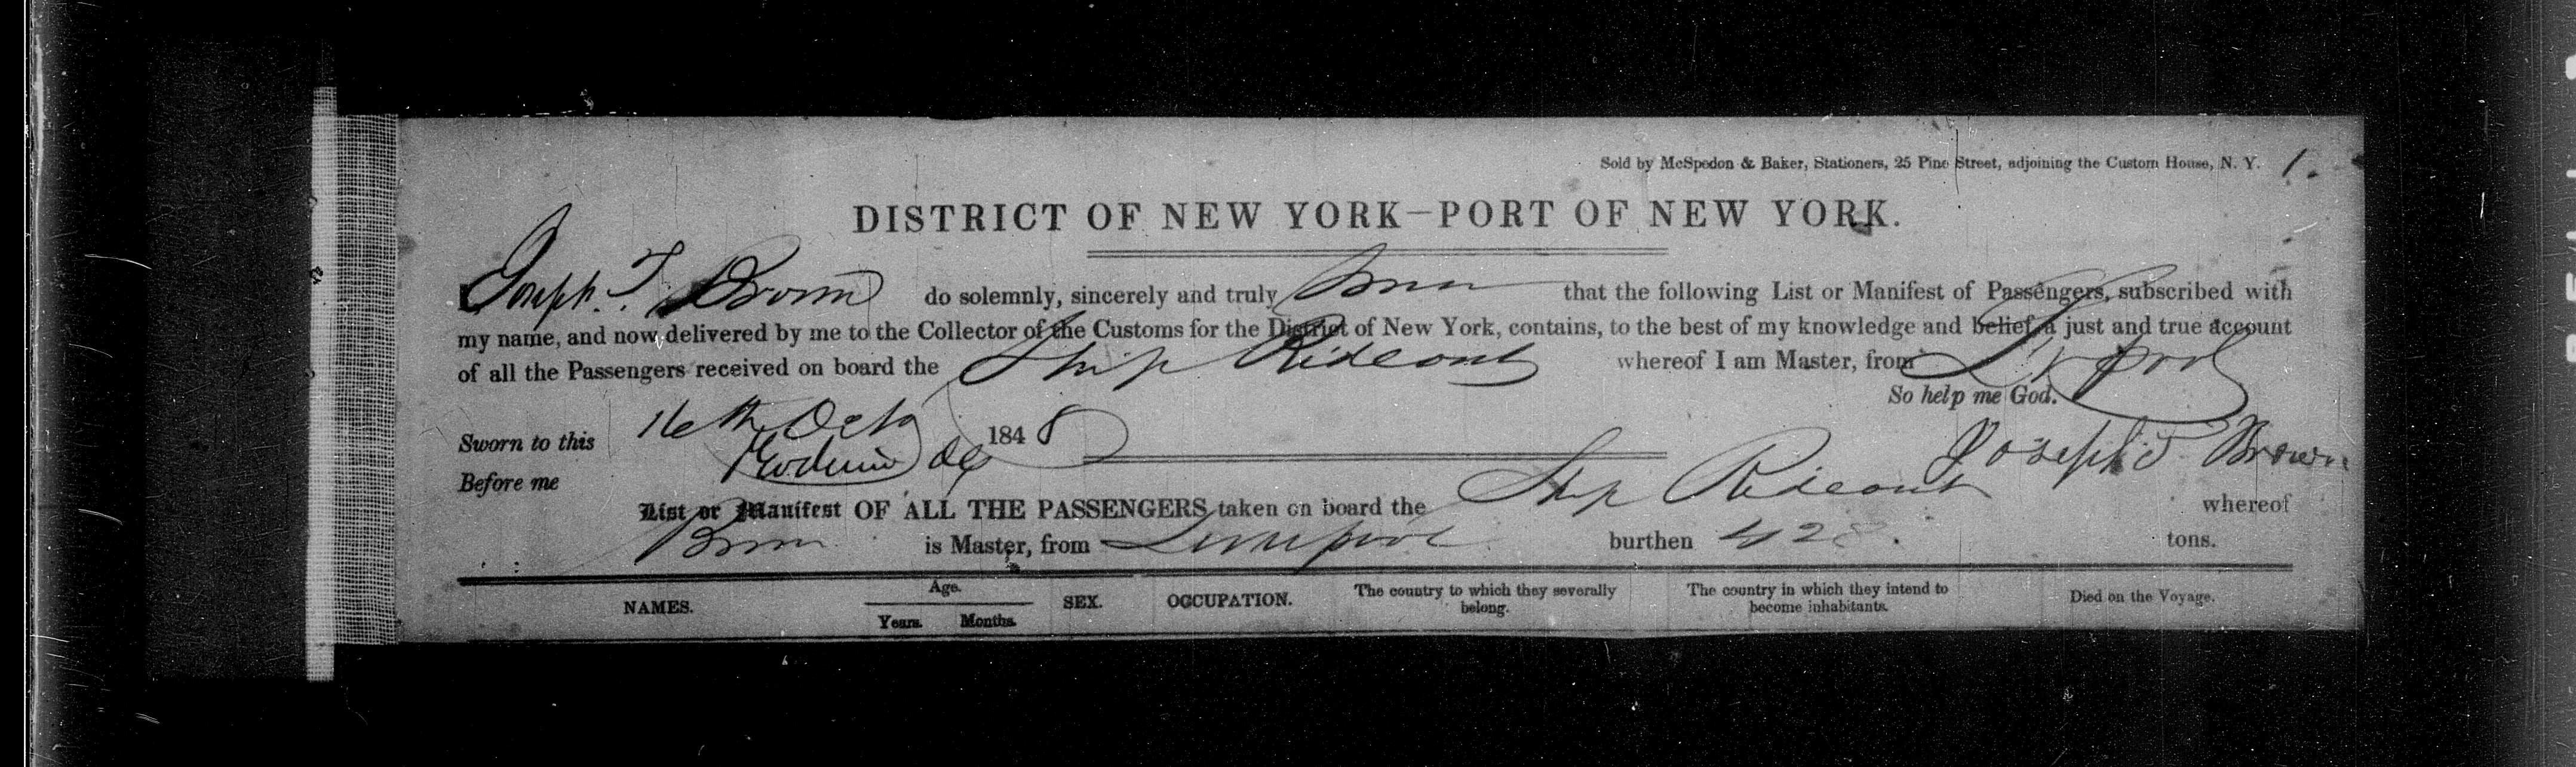 Sold by McSpedon & Baker, Stationers, 25 Pine Street, adjoining the Custom House, N. Y. 1.
DISTRICT OF NEW YORK—PORT OF NEW YORK.
I Joseph. T. Brown do solemnly, sincerely and truly Swear that the following List or Manifest of Passengers, subscribed with
my name, and now delivered by me to the Collector of the Customs for the District of New York, contains, to the best of my knowledge and belief, a just and true account
of all the Passengers received on board the Ship Rideout whereof I am Master, from L'pool
So help me God.
Sworn to this 16th Octo 1848
Joseph T Brown
Before me
List or Manifest OF ALL THE PASSENGERS taken on board the Ship Rideout whereof
Brown is Master, from Liverpool burthen 428. tons.
NAMES. Age. SEX. OCCUPATION. The country to which they severally belong. The country in which they intend to become inhabitants. Died on the Voyage.
Years. Months.